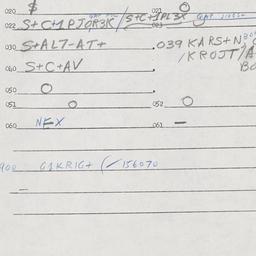 020 $ 021 O
022 S+C+1PJOR3K/S+C+1PL3X
030 S+AL7-AT+ . 039 KARS+N
/KROJT/A
040 S+C+AV
050 O
051 O 052 O
060 NEX 061 —
900 G1KRIG+ (/156070
—